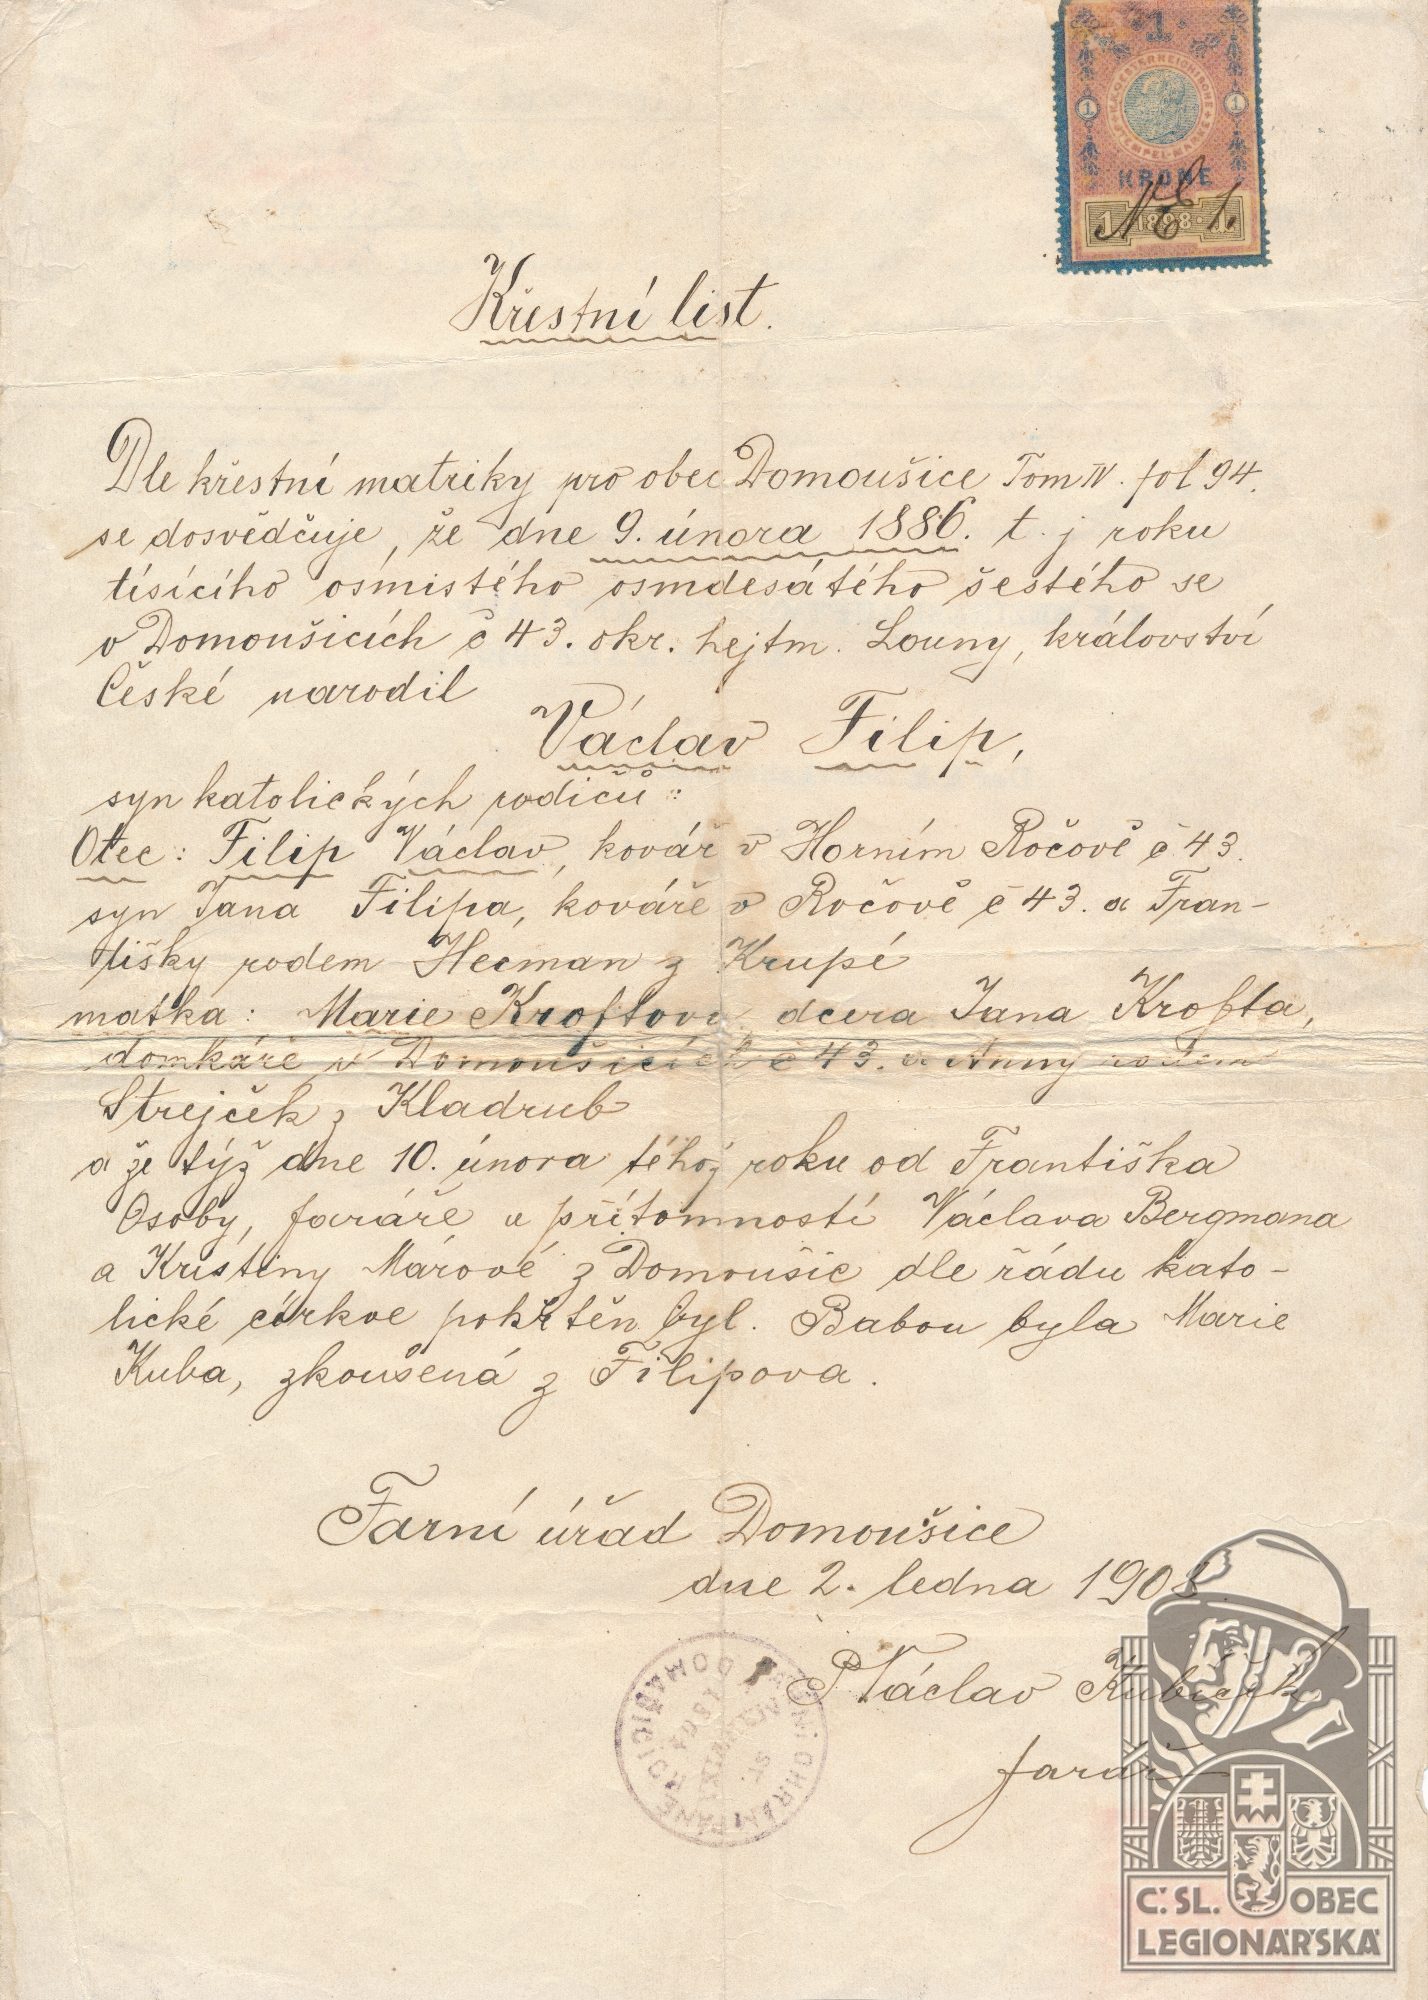 1
K.K. OESTERREICHISCHE
STEMPEL-MARKE
1 1
KRONE
1 1898 1
Křestní list.
Dle křestní matriky pro obec Domoušice Tom IV. fol 94.
se dosvědčuje, že dne 9. února 1886. t. j roku
tisícího osmistého osmdesátého šestého se
v Domoušicích č 43. okr. hejtm. Louny, království
České narodil
Václav Filip,
syn katolických rodičů:
Otec: Filip Václav, kovář v Horním Ročově č 43.
syn Jana Filipa, kováře v Ročově č 43. a Fran-
tišky rodem Hecman z Krupé
matka: Marie Kroftova dcera Jana Krofta,
domkáře v Domoušicích č 43. a Anny rodem
Strejček z Kladrub
a že týž dne 10. února téhož roku od Františka
Osoby, faráře u přítomnosti Václava Bergmana
a Kristiny Márové z Domoušic dle řádu kato-
lické církve pokřtěn byl. Babou byla Marie
Kuba, zkoušená z Filipova.
Farní úřad Domoušice
dne 2. ledna 1903
P Václav Kubíček
farář
Č. SL. OBEC
LEGIONÁŘSKÁ